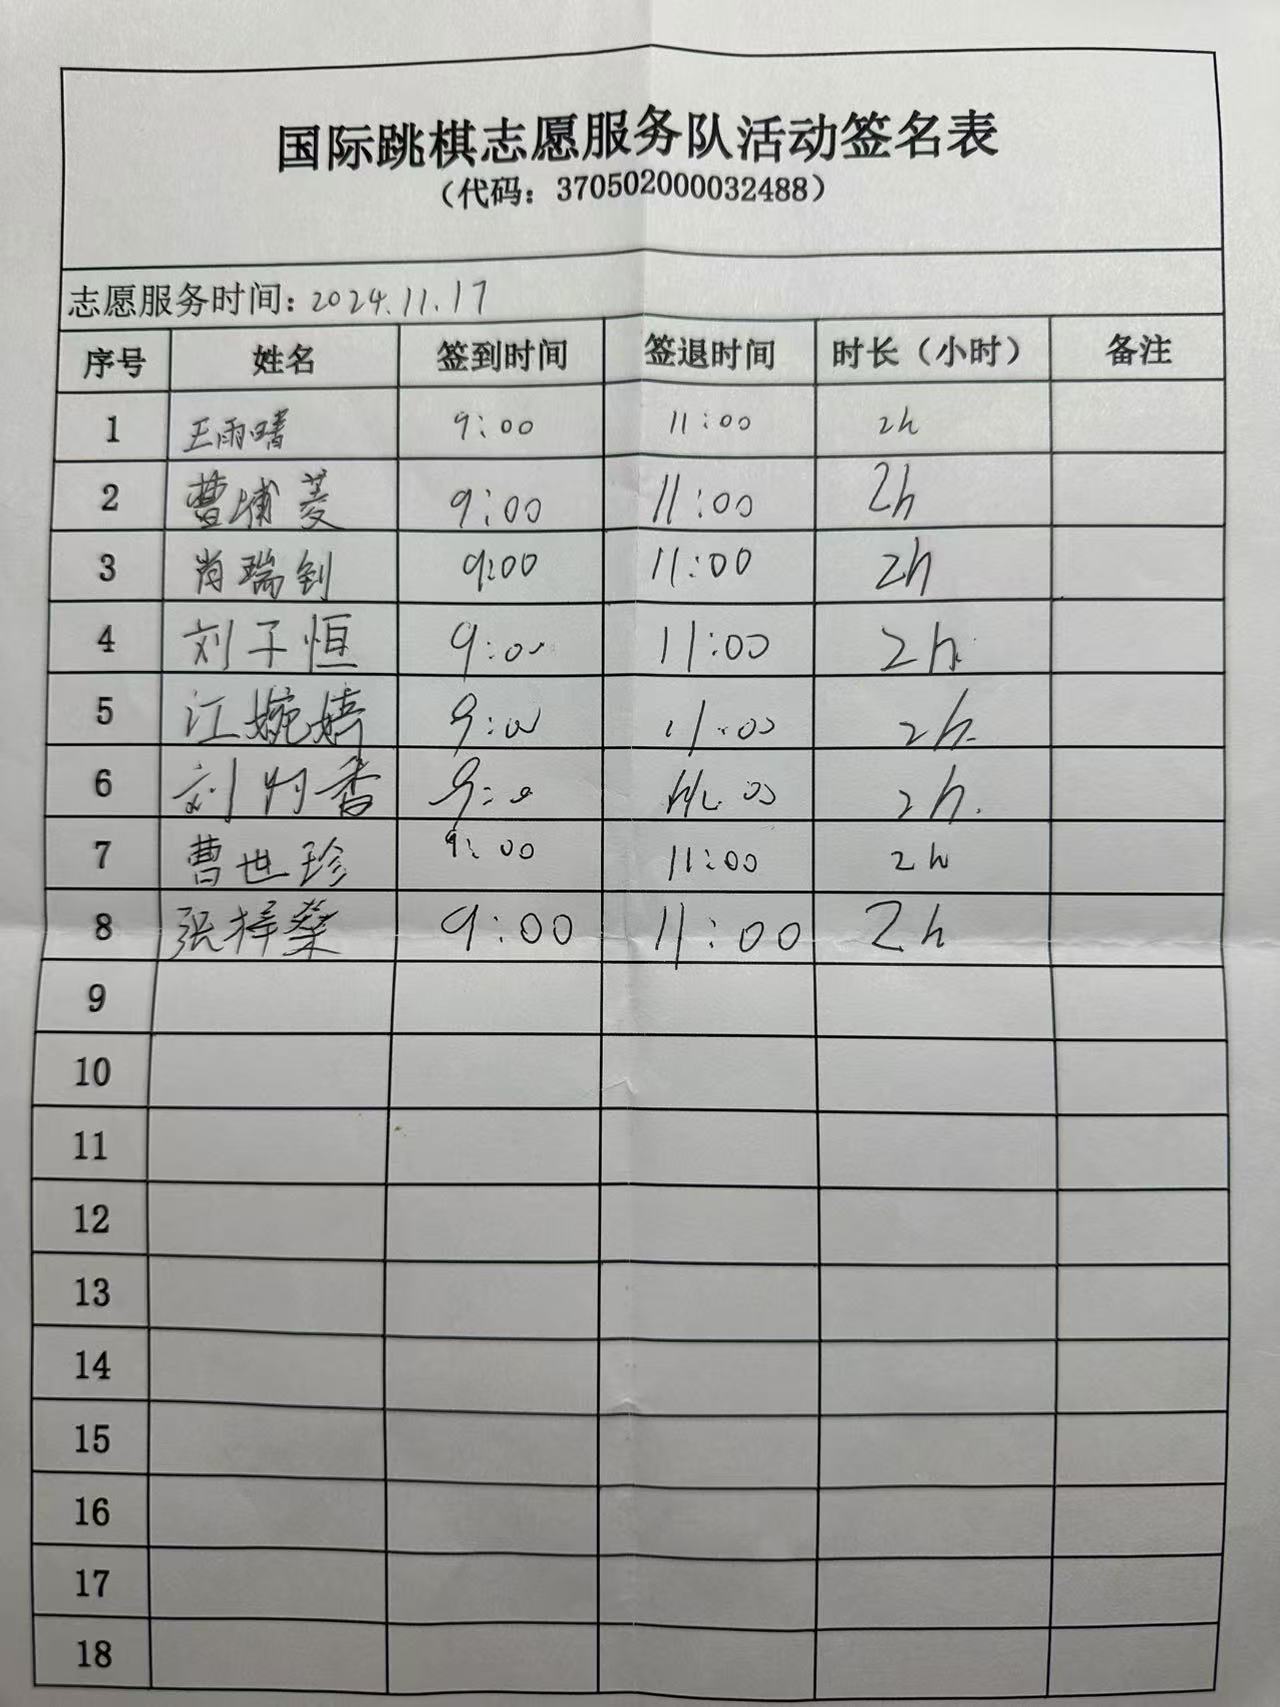 国际跳棋志愿服务队活动签名表
（代码：370502000032488）
志愿服务时间：2024.11.17
序号 姓名 签到时间 签退时间 时长（小时） 备注
1 王雨晴 9:00 11:00 2h
2 曹埔菱 9:00 11:00 2h
3 肖瑞钊 9:00 11:00 2h
4 刘子恒 9:00 11:00 2h
5 江婉婷 9:00 11:00 2h
6 刘 香 9:00 11:00 2h
7 曹世珍 9:00 11:00 2h
8 张梓燊 9:00 11:00 2h
9
10
11
12
13
14
15
16
17
18